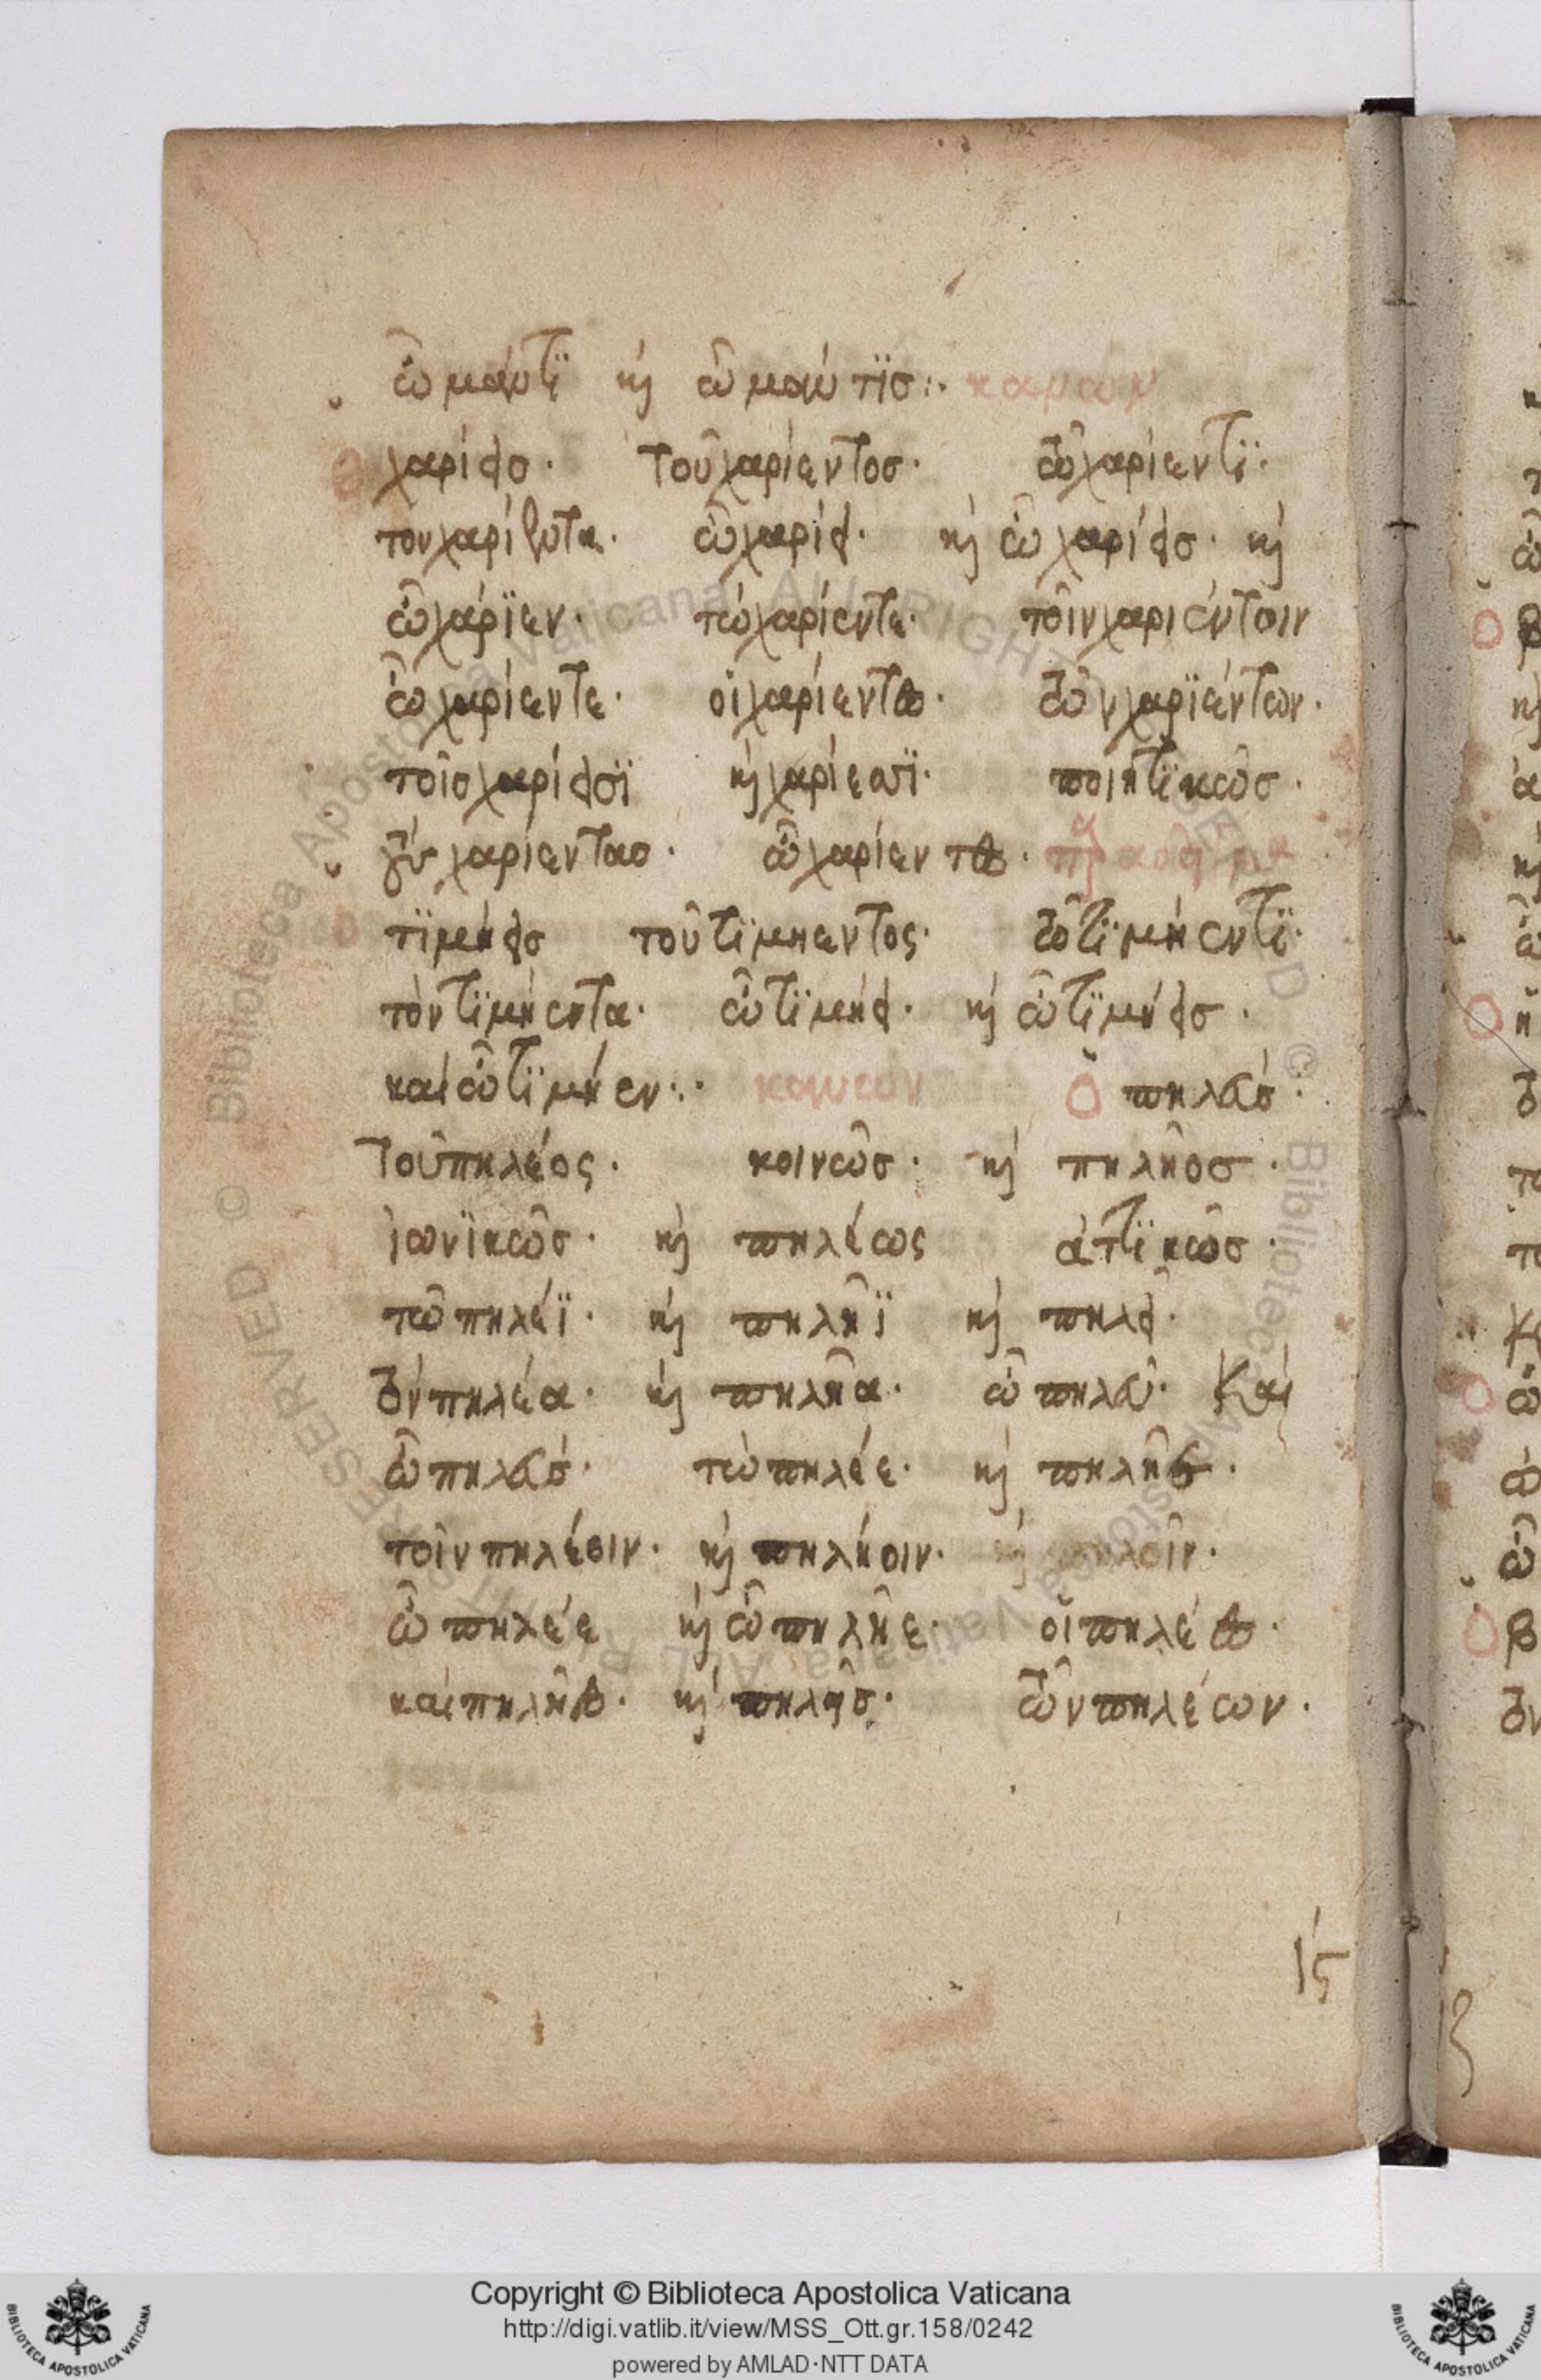 ὦ μάντι κỳ ὦ μάντϊσ:· κανων
Ο χαρίεισ· τοῦ χαρίεντοσ· τῶ χαρίεντϊ·
τον χαρίεντα· ὦ χαρίει· κỳ ὦ χαρίεισ· κỳ
ὦ χάρϊεν· τὼ χαρίεντε· τοῖν χαριέντοιν
ὦ χαρίεντε· οἱ χαρίεντες· τῶν χαρϊέντων·
τοῖσ χαρίεισϊ κỳ χαρίεσϊ· ποιητϊκῶσ·
τοὺς χαρίεντασ· ὦ χαρίεντες·
ὁ τϊμήεισ τοῦ τϊμήεντος· τῶ τϊμήεντϊ·
τὸν τϊμήεντα· ὦ τϊμήει· κỳ ὦ τϊμήεισ·
καὶ ὦ τϊμήεν:· κανων Ὁ πηλεύσ·
τοῦ πηλέος· κοινῶσ· κỳ πηλῆοσ·
ἰωνϊκῶσ· κỳ πηλέως ἀτϊκῶσ·
τῶ πηλέϊ· κỳ πηλῆϊ κỳ πηλεῖ·
τὸν πηλέα· κỳ πηλῆα· ὦ πηλεῦ· Καὶ
ὦ πηλεύσ· τὼ πηλέε· κỳ πηλῆε·
τοῖν πηλέοιν· κỳ πηλήοιν· κỳ πηλοῖν·
ὦ πηλέε κỳ ὦ πηλῆε· οἱ πηλέες·
καὶ πηλῆες· κỳ πηλεῖσ· τῶν πηλέων·
ις
Copyright © Biblioteca Apostolica Vaticana
http://digi.vatlib.it/view/MSS_Ott.gr.158/0242
powered by AMLAD·NTT DATA